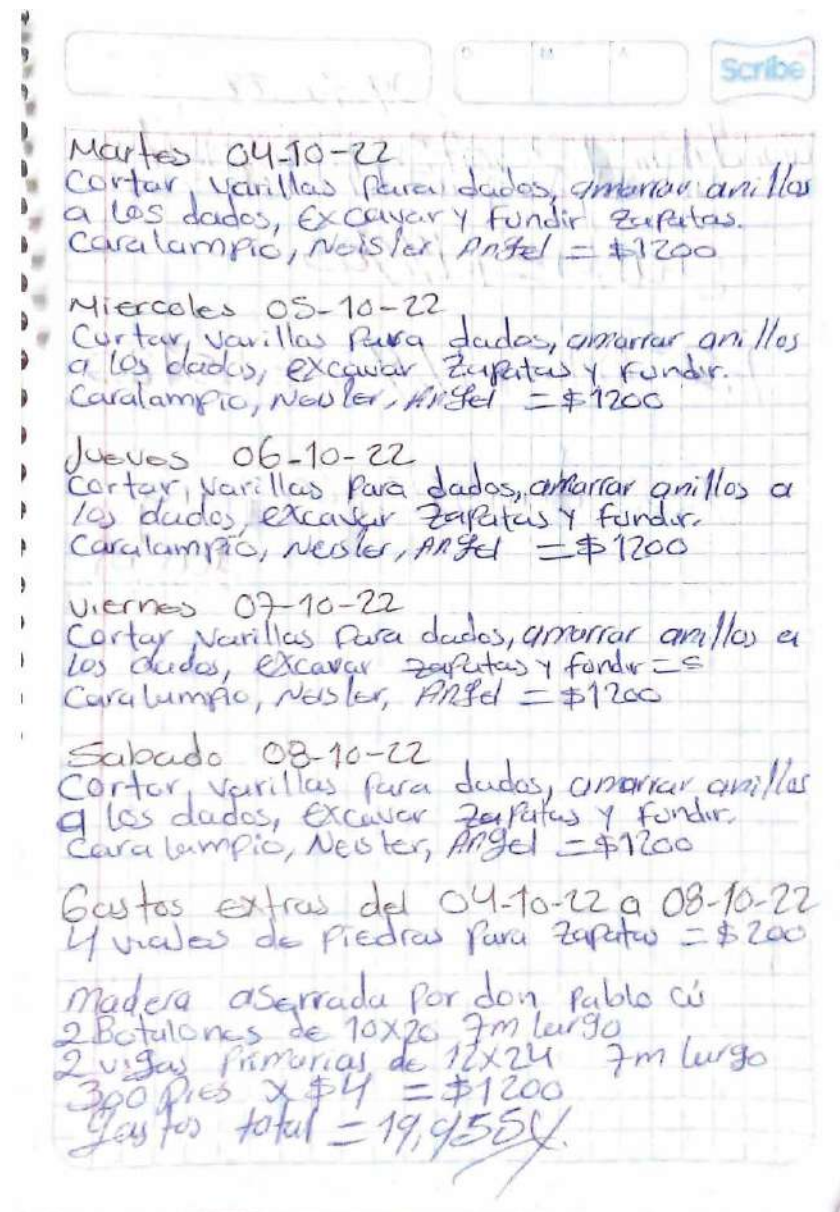 D M A
Scribe
Martes 04-10-22
Cortar, varillas para dados, amarrar anillos
a los dados, excavar y fundir zapatas.
Caralampio, Neisler, Angel = $1200
Miercoles 05-10-22
Curtar, varillas para dados, amarrar anillos
a los dados, excavar zapatas y fundir.
Caralampio, Neisler, Angel = $1200
Jueves 06-10-22
Cortar, varillas para dados, amarrar anillos a
los dados, excavar zapatas y fundir.
Caralampio, Neisler, Angel = $1200
Viernes 07-10-22
Cortar varillas para dados, amarrar anillos a
los dados, excavar zapatas y fundir = s
Caralumpio, Neisler, Angel = $1200
Sabado 08-10-22
Cortar, varillas para dados, amarrar anillos
a los dados, excavar zapatas y fundir.
Caralumpio, Neisler, Angel = $1200
Gastos extras del 04-10-22 a 08-10-22
4 viajes de piedras para zapatas = $200
Madera aserrada por don Pablo Cú
2 Botalones de 10x20 7m largo
2 vigas primarias de 12x24 7m largo
300 pies x $4 = $1200
gastos total = 19,955